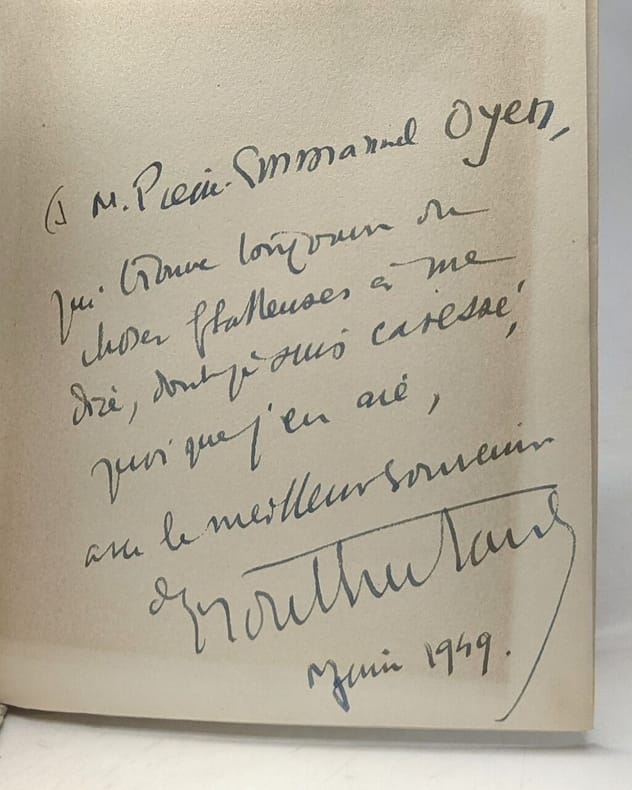 à M. Pierre-Emmanuel Oyen,
qui trouve toujours des
choses flatteuses à me
dire, dont je suis caressé,
quoi que j'en aie,
avec le meilleur souvenir
de Montherlant
juin 1949.